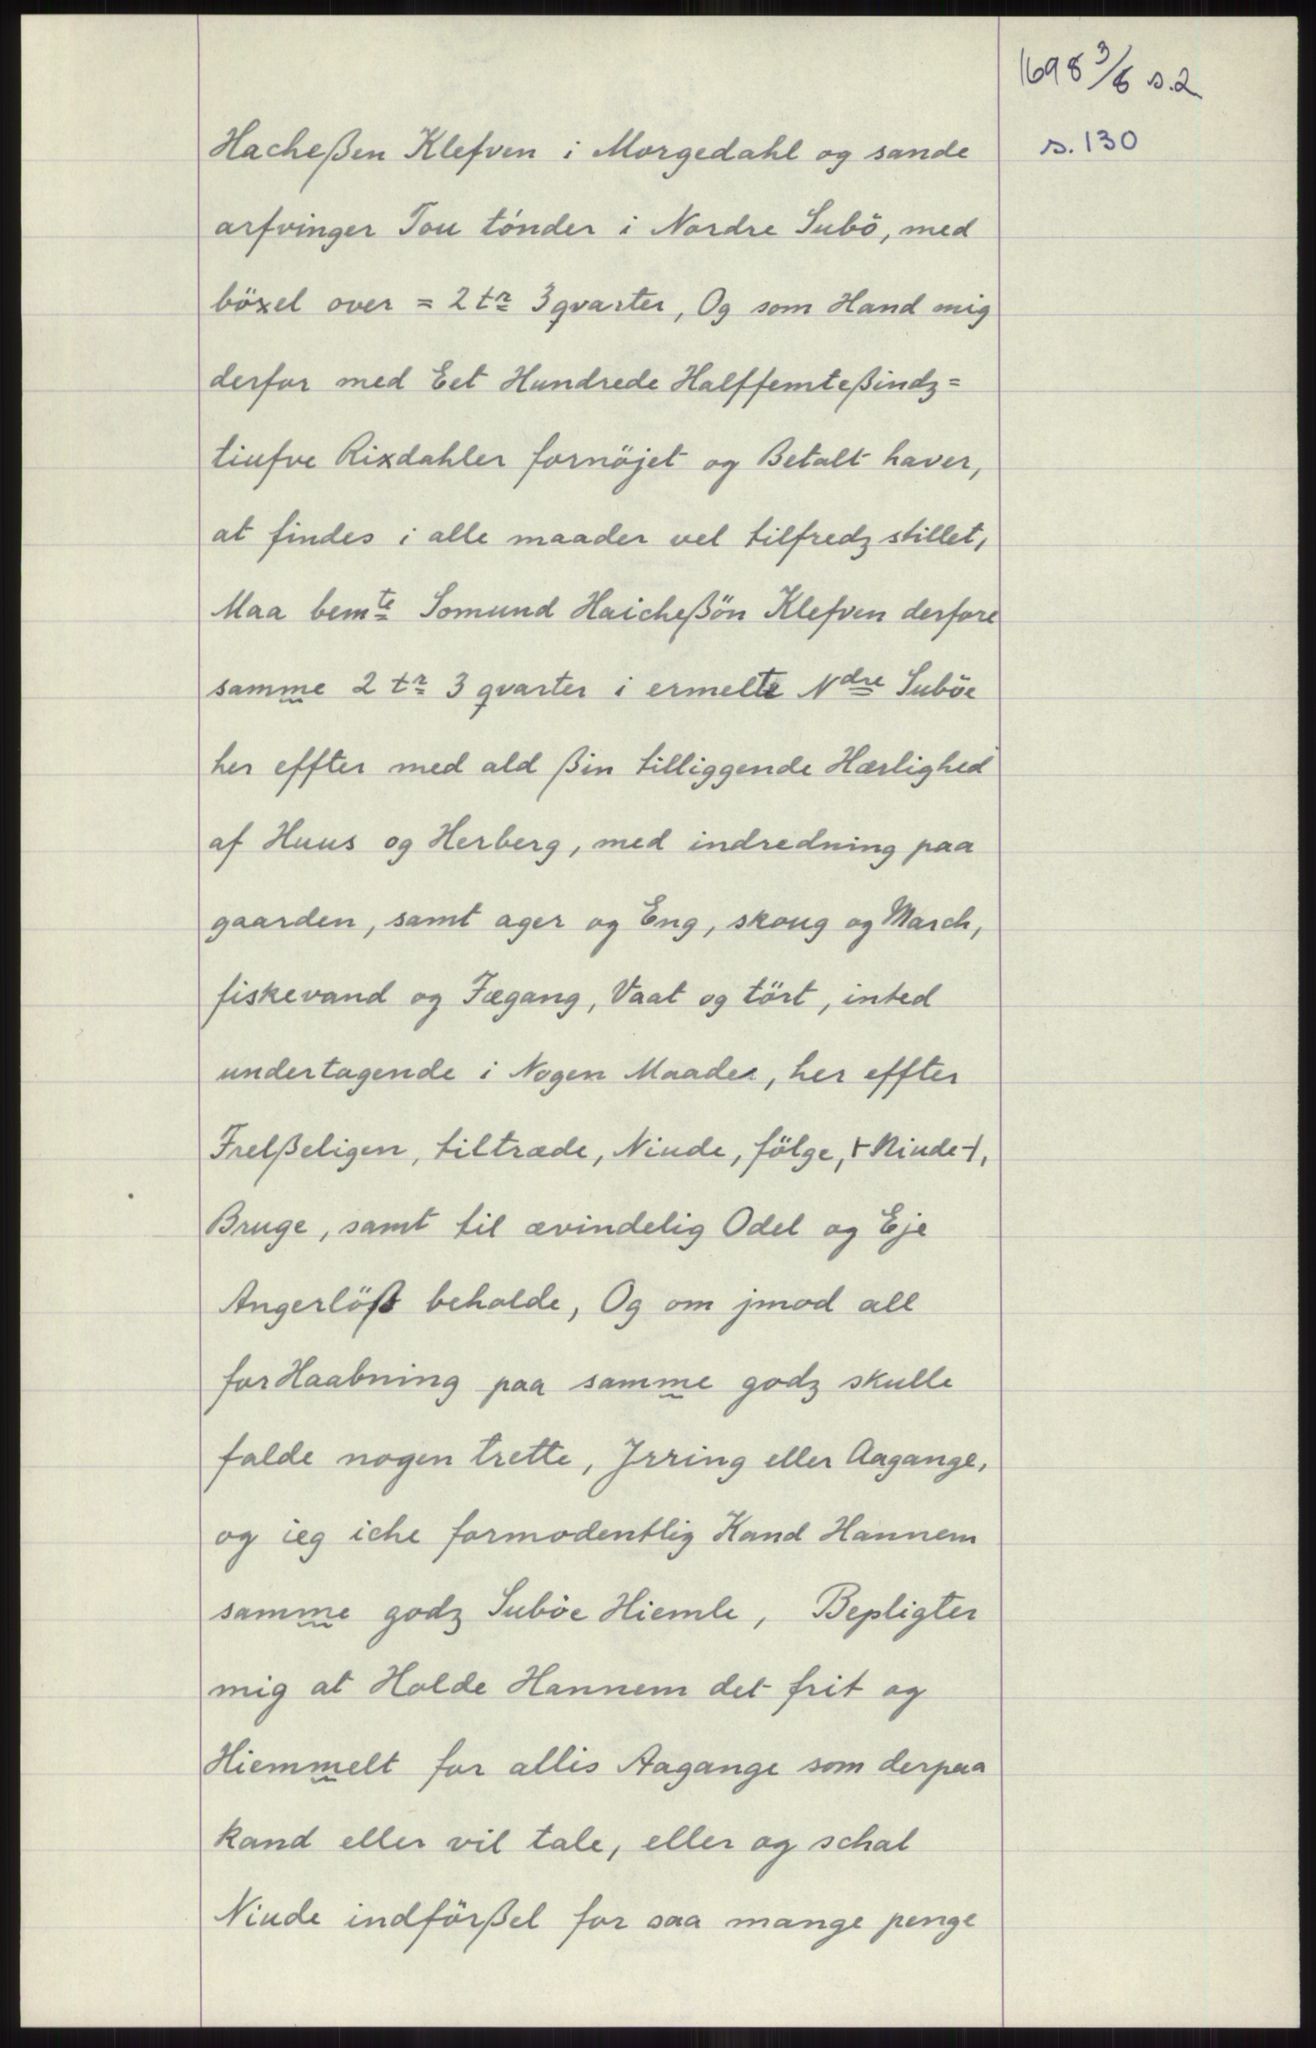 1698 3/6 s.2
s. 130
Hacheßen Klefven i Morgedahl og sande
arfvinger Tou tönder i Nordre Subö, med
böxel over = 2 tr 3 qvarter, Og som Hand mig
derfor med Eet Hundrede Halffemteßindz=
tiufve Rixdahler fornöjet og Betalt haver,
at findes i alle maader vel tilfredz stillet,
Maa bemte Somund Haicheßön Klefven derfore
samme 2 tr 3 qvarter i ermelte Ndre Suböe
her effter med ald ßin tilliggende Hærlighed
af Huus og Herberg, med indredning paa
gaarden, samt ager og Eng, skoug og March,
fiskevand og Fægang, Vaat og tört, inted
undertagende i Nogen Maader, her effter
Frelßeligen, tiltræde, Niude, fölge, ⊢Niude⊣,
Bruge, samt til ævindelig Odel og Eje
Angerlöß beholde, Og om jmod all
forHaabning paa samme godz skulle
falde nogen trette, Jrring eller Aagange,
og ieg iche formodentlig Kand Hannem
samme godz Suböe Hiemle, Bepligter
mig at Holde Hannem det frit og
Hiemmelt for allis Aagange som derpaa
kand eller vil tale, eller og schal
Niude indförßel for saa mange penge